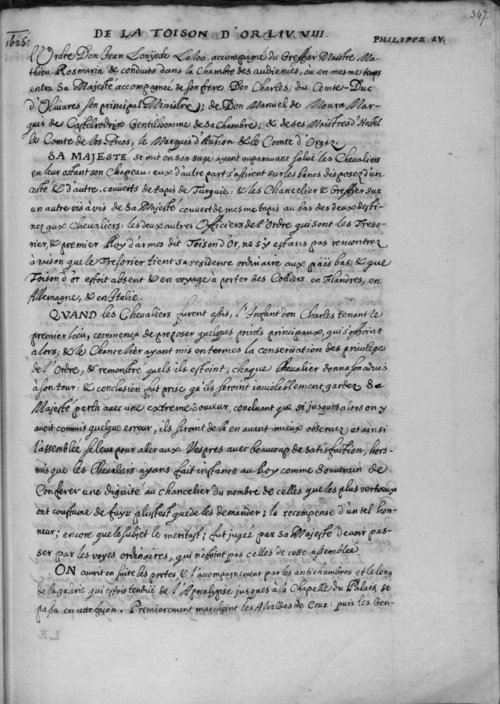 347
1626.
DE LA TOISON D'OR. LIV. VIII. PHILIPPE IV.
l'Ordre Don Jean Louys de Laloo, accompagné du Greffier Maistre Ma-
thieu Rosmarin de conduits dans la Chambre des audiences, ou en mesme temps
entra Sa Majesté accompagnée de son frere Don Charles; du Comte-Duc
d'Olivares son principal Ministre; de Don Manuel de Moura, Mar-
quis de Castelrodrigo Gentilhomme de sa Chambre; & de ses Maistres d'Hostel
le Comte de los Arcos, le Marquis d'Auñon & le Comte d'Orgaz.
SA MAJESTE se mit en son siege ayant auparavant salué les Chevaliers
en leur ostant son Chapeau: eux d'autre part s'assirent sur les bancs disposez d'un
costé & d'autre, couverts de tapis de Turquie: & les Chancelier & Greffier sur
un autre vis à vis de Sa Majesté couvert de mesme tapis au bas des deux desti-
nez aux Chevaliers: les deux autres Officiers de l'Ordre qui sont les Treso-
rier, & premier Roy d'armes dit Toison d'Or, ne s'y estans pas rencontrez
à raison que le Tresorier tient sa residence ordinaire aux païs bas; & que
Toison d'or estoit absent & en voyage à porter des Colliers en Flandres, en
Allemagne, & en Italie.
QUAND les Chevaliers furent assis, l'Infant don Charles tenant le
premier lieu, commença de proposer quelques points principaux, qui s'offroint
alors; & le Chancelier ayant mis en termes la conservation des privileges
de l'Ordre, & remonstré quels ils estoint; chaque Chevalier donna son advis
à son tour: & conclusion fut prise qu'ils seroint inviolablement gardez & Sa
Majesté parla avec une extreme douceur, concluant que si jusques alors on y
avoit commis quelque erreur, ils seront de là en avant mieux observez; et ainsi
l'assemblée se leva pour aller aux Vespres avec beaucoup de satisfaction, hors-
mis que les Chevaliers ayans fait instance au Roy comme Souverain de
Conferer une dignité au chancelier du nombre de celles que les plus vertueux
ont coustume de fuyr plustost que de les demander; la recompense d'un tel hon-
neur; encore que le subjet le meritast; fut jugée par sa Majesté devoir pas-
ser par les voyes ordinaires, qui n'estoint pas celles de cette assemblée
ON ouvrit en suite les portes, & l'accompagnement par les antichambres et le long
de la galerie qui estoit tendue de l'Apocalypse jusques à la Chapelle du Palais, se
passa en cette façon. Premierement marchoient les Alcaldes de Cour: puis les Gen-